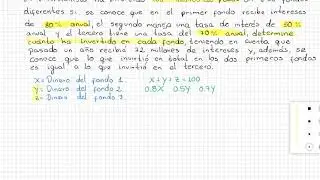 diferentes si: se conoce que en el primer fondo recibe intereses
de 80% anual, el segundo maneja una tasa de interés de 50%
anual y el tercero tiene una tasa del 70% anual, determine
cuánto ha invertido en cada fondo, teniendo en cuenta que
pasado un año recibe 32 millares de intereses y, además, se
conoce que lo que invirtió en total en los dos primeros fondos
es igual a lo que invirtió en el tercero.
X = Dinero del fondo 1 X + Y + Z = 100
Y = Dinero del fondo 2 0.8X 0.5Y 0.7Z
Z = Dinero del fondo 3